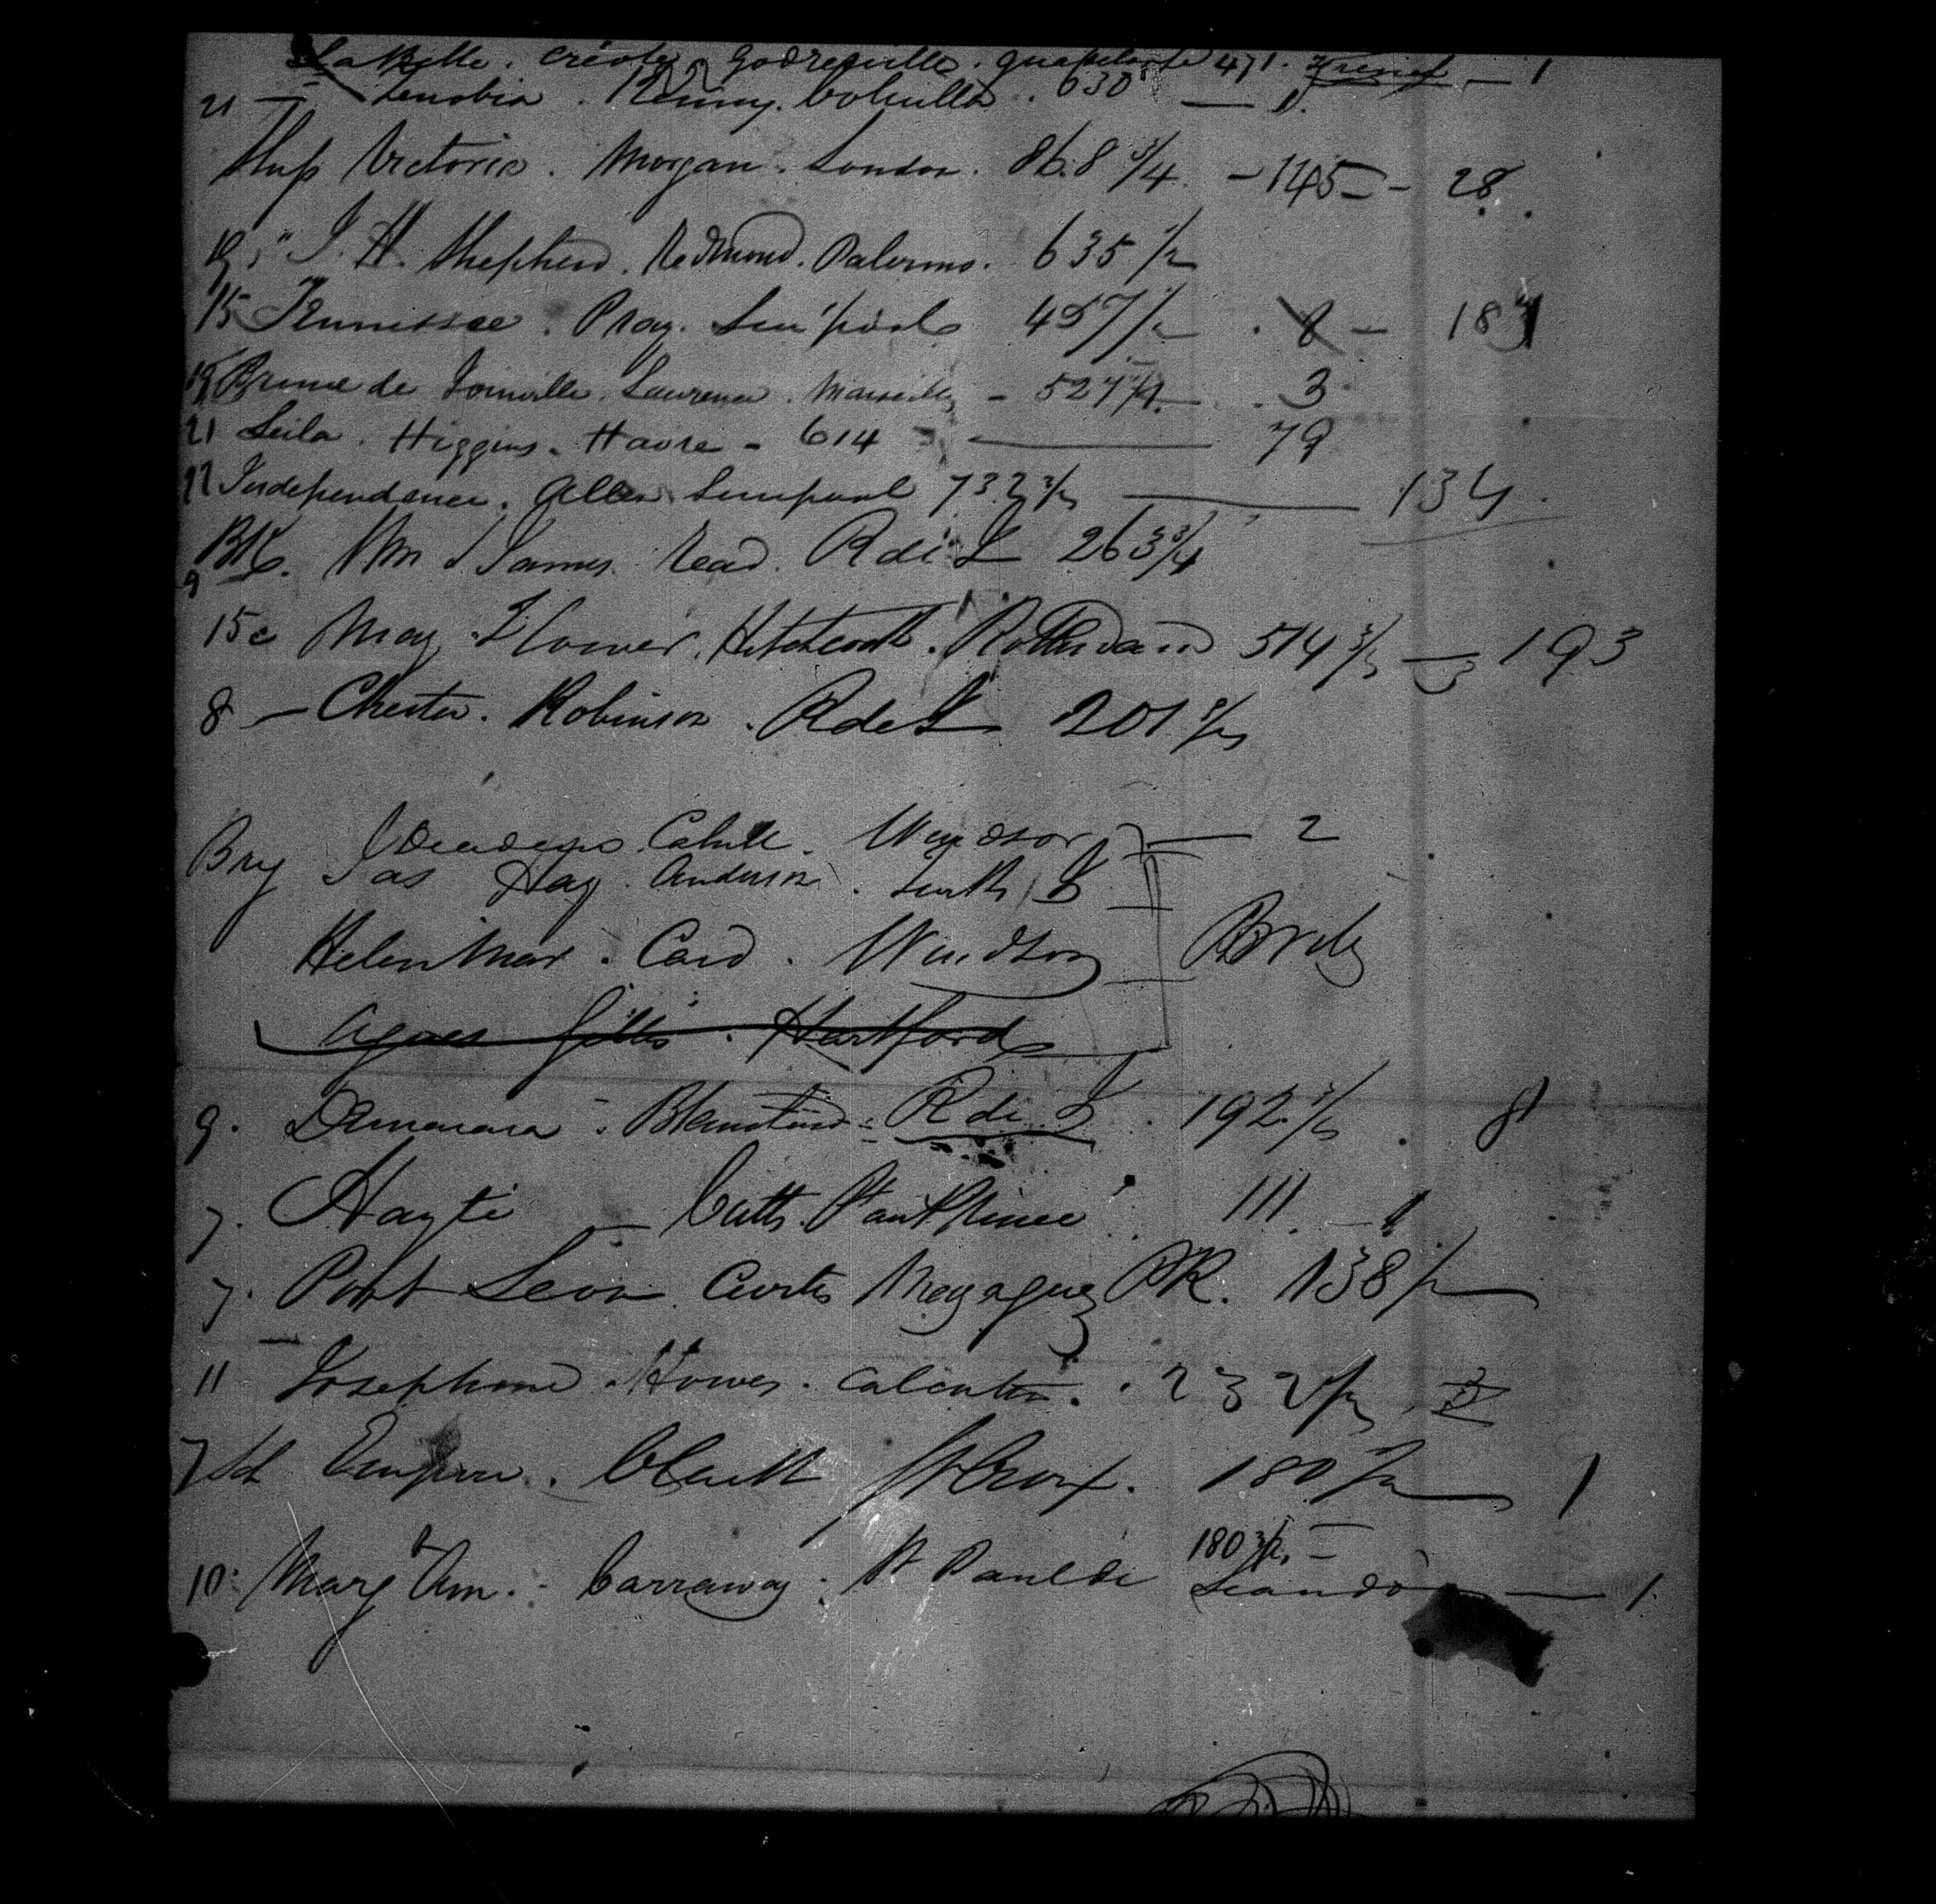 La Belle. Créole. Godreville. 471. French — 1
21 — Zenobia. Kenny. 630 — 1
Ship Victoria. Morgan. London. 868 3/4 - 145 - 28
19 " J. H. Shepherd. Redmond. Palermo. 635 1/2
15 Tennessee. Pray. Liv'pool 457 1/2 . 8 — 18
19 Prince de Joinville. Lawrence. Marseilles - 527 3
21 Leila. Higgins. Havre - 614 — 79
22 Independence. Allen Liverpool 732 — 134.
BK. Wm & James. Read. R de L 263 3/4
9
15 c May Flower. Hitchcock. Rotterdam 514 — 193
8 — Chester. Robinson. R de L 201
Brg Cahill. Windsor — 2
Jas Hay. Anderson.
Helen Mar. Card. Windsor Brds
Agnes Hartford
9. Demarara. R de L. 192 8
7. Hayti — Cutts. Port Prince 111. — 1
7. Port Leon. Curtis Mayaguez PR. 138
11 Josephine. Howes. Calcutta. 232
7 Sch Empire. Clark St Croix. 180 1
180
10. Mary Ann. Carraway. St Paul de Loando — 1.